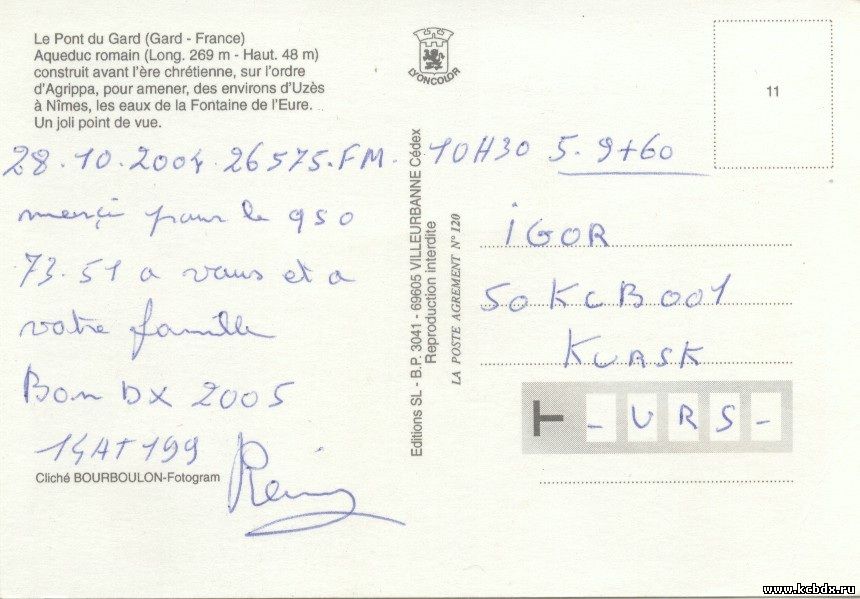 Le Pont du Gard (Gard - France)
Aqueduc romain (Long. 269 m - Haut. 48 m)
construit avant l'ère chrétienne, sur l'ordre
d'Agrippa, pour amener, des environs d'Uzès
à Nîmes, les eaux de la Fontaine de l'Eure.
Un joli point de vue.
LYONCOLOR
11
28.10.2004.26575.FM. 10H30 5.9+60
merçi pour le qso
73.51 a vous et a
votre famille
Bon DX 2005
14AT199
Rémi
Cliché BOURBOULON-Fotogram
Editions SL - B.P. 3041 - 69605 VILLEURBANNE Cédex
Reproduction interdite
LA POSTE AGREMENT N° 120
IGOR
50KCB001
KURSK
- URS -
www.kcbdx.ru